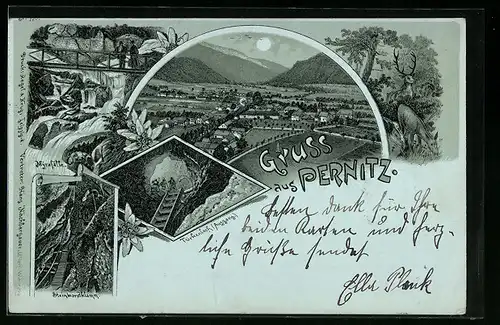 Gruss
aus PERNITZ.
Myrafälle
Türkenloch (Ausgang)
Steinwandklamm
Besten Dank für Ihre
beiden Karten und herz-
liche Grüße sendet
Ella